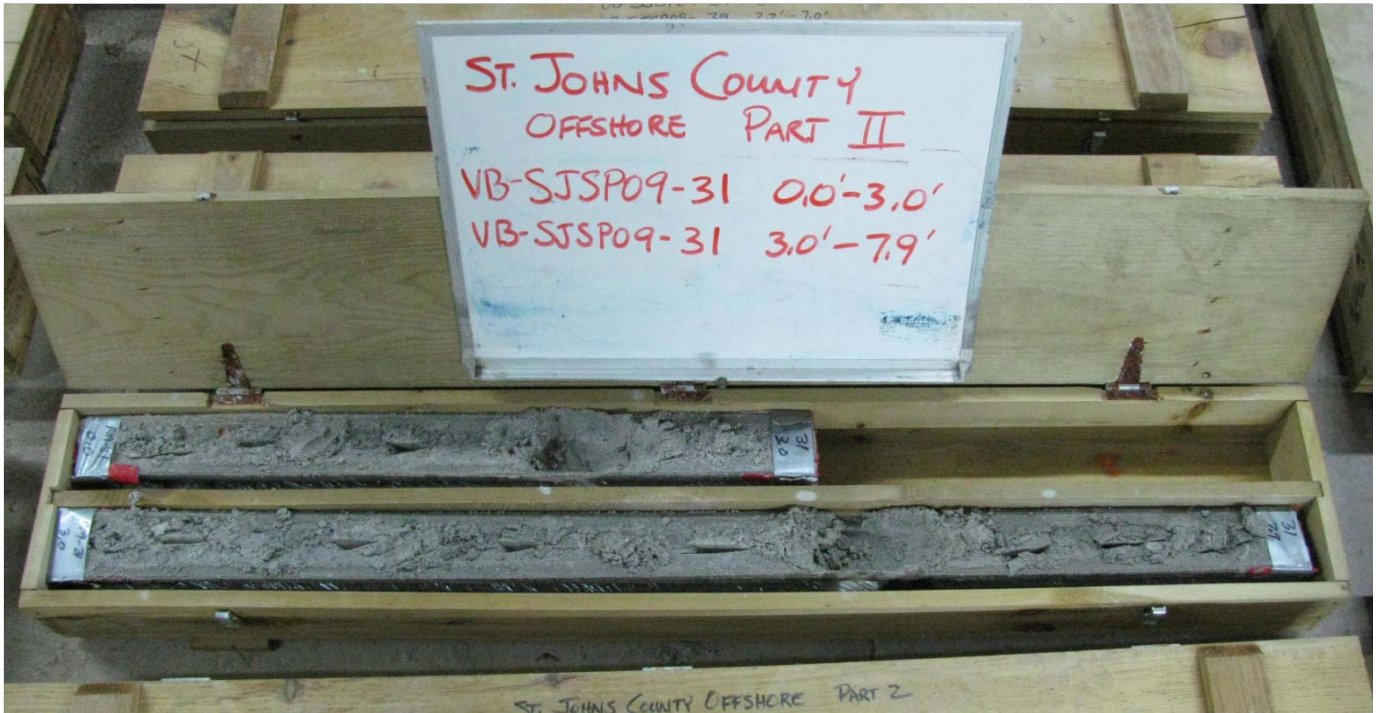 ST. JOHNS COUNTY
OFFSHORE PART II
VB-SJSP09-31 0.0'-3.0'
VB-SJSP09-31 3.0'-7.9'
0.0
31
3.0
3.0
31
7.9
ST. JOHNS COUNTY OFFSHORE PART 2